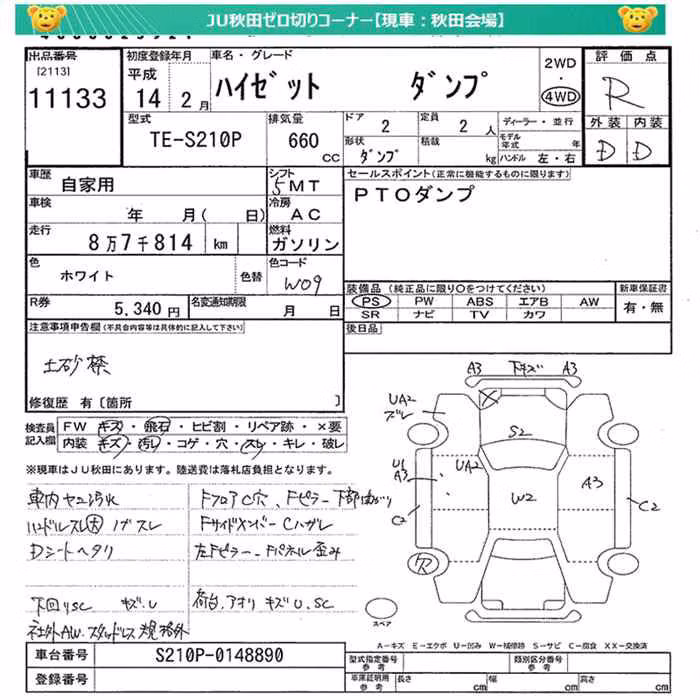 JU秋田ゼロ切りコーナー【現車：秋田会場】
出品番号
[2113]
11133
初度登録年月
平成
14年 2月
車名・グレード
ハイゼット ダンプ
2WD
・
4WD
評価点
R
外装 内装
D D
型式
TE-S210P
排気量
660
CC
ドア
2
定員
2人
形状
ダンプ
積載
kg
ディーラー・並行
モデル年式 年
ハンドル 左・右
車歴
自家用
シフト
5MT
車検
年 月( 日)
冷房
AC
走行
8万7千814 km
燃料
ガソリン
色
ホワイト
色替
色コード
W09
R券
5,340円
名変通知期限
月 日
セールスポイント(正常に機能するものに限ります)
PTOダンプ
装備品(純正品に限り○をつけてください)
PS PW ABS エアB AW
SR ナビ TV カワ
新車保証書
有・無
後日品
注意事項申告欄(不具合内容等は具体的に記入して下さい)
土砂禁
修復歴 有[箇所 ]
検査員記入欄
FW キズ・飛石・ヒビ割・リペア跡・×要
内装 キズ・汚れ・コゲ・穴・スレ・キレ・破レ
※現車はJU秋田にあります。陸送費は落札店負担となります。
車内ヤニ汚れ
ハンドルスレ大 ハゲスレ
Dシートヘタリ
下回りSC キズ.U
社外AW.スタッドレス規格外
FフロアC穴、Fピラー下部曲がり
FサイドメンバーCハガレ
左Fピラー、Fパネル歪み
荷台.アオリキズU.SC
A3 下キズ A3
UA2
ズレ
S2
U1
A3
UA2
W2
A3
C2
C2
スペア
A−キズ E−エクボ U−凹み W−補修跡 S−サビ C−腐食 XX−交換済
車台番号
S210P-0148890
登録番号
型式指定番号
参考
類別区分番号
参考
車庫証明用
参考
長さ cm
幅 cm
高さ cm